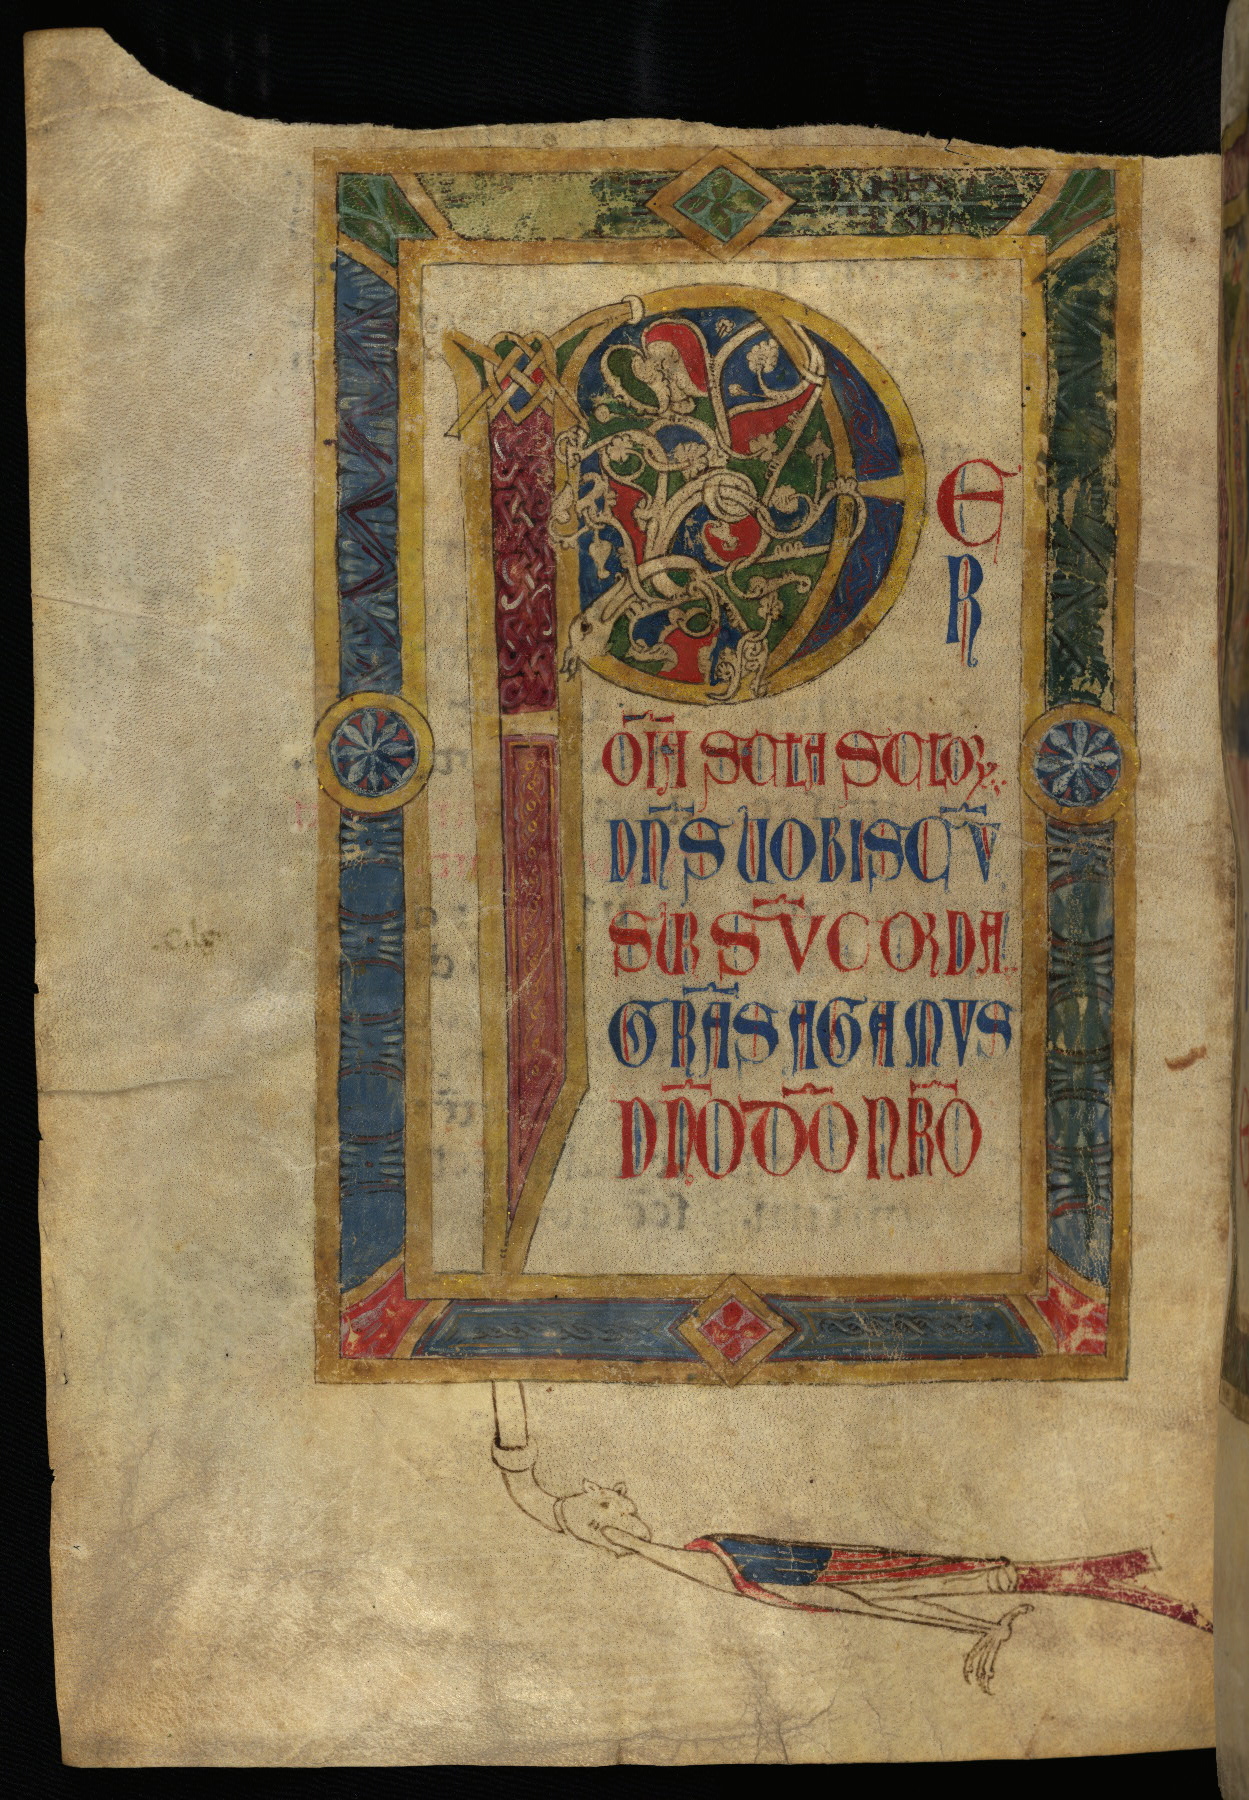 P
E
R
OM̅IA SCLA SCLOR̨.
DN̅S UOBISCV̅
SUR SV̅ CORDA.
GRA̅S AGAMVS
DN̅O DO̅ NR̅O